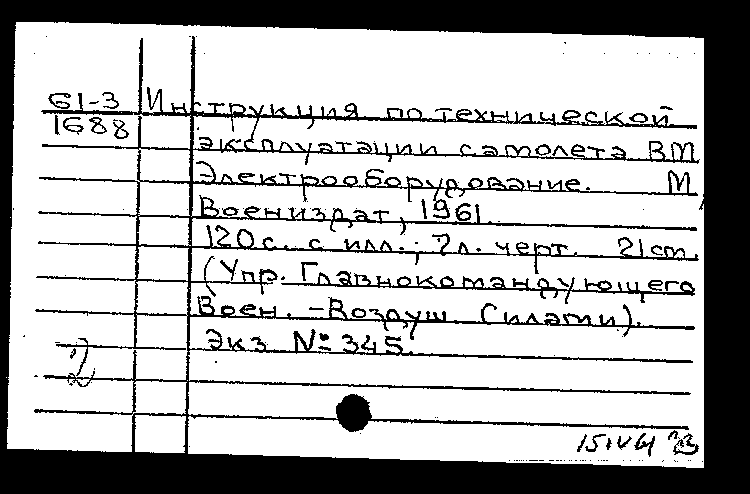 61-3 Инструкция по технической
1688
эксплуатации самолета ВМ
Электрооборудование. М,
Воениздат, 1961.
120с. с илл.; 7л. черт. 21см.
(Упр. Главнокомандующего
Воен.-Воздуш. Силами).
Экз №345.
2
15IV61